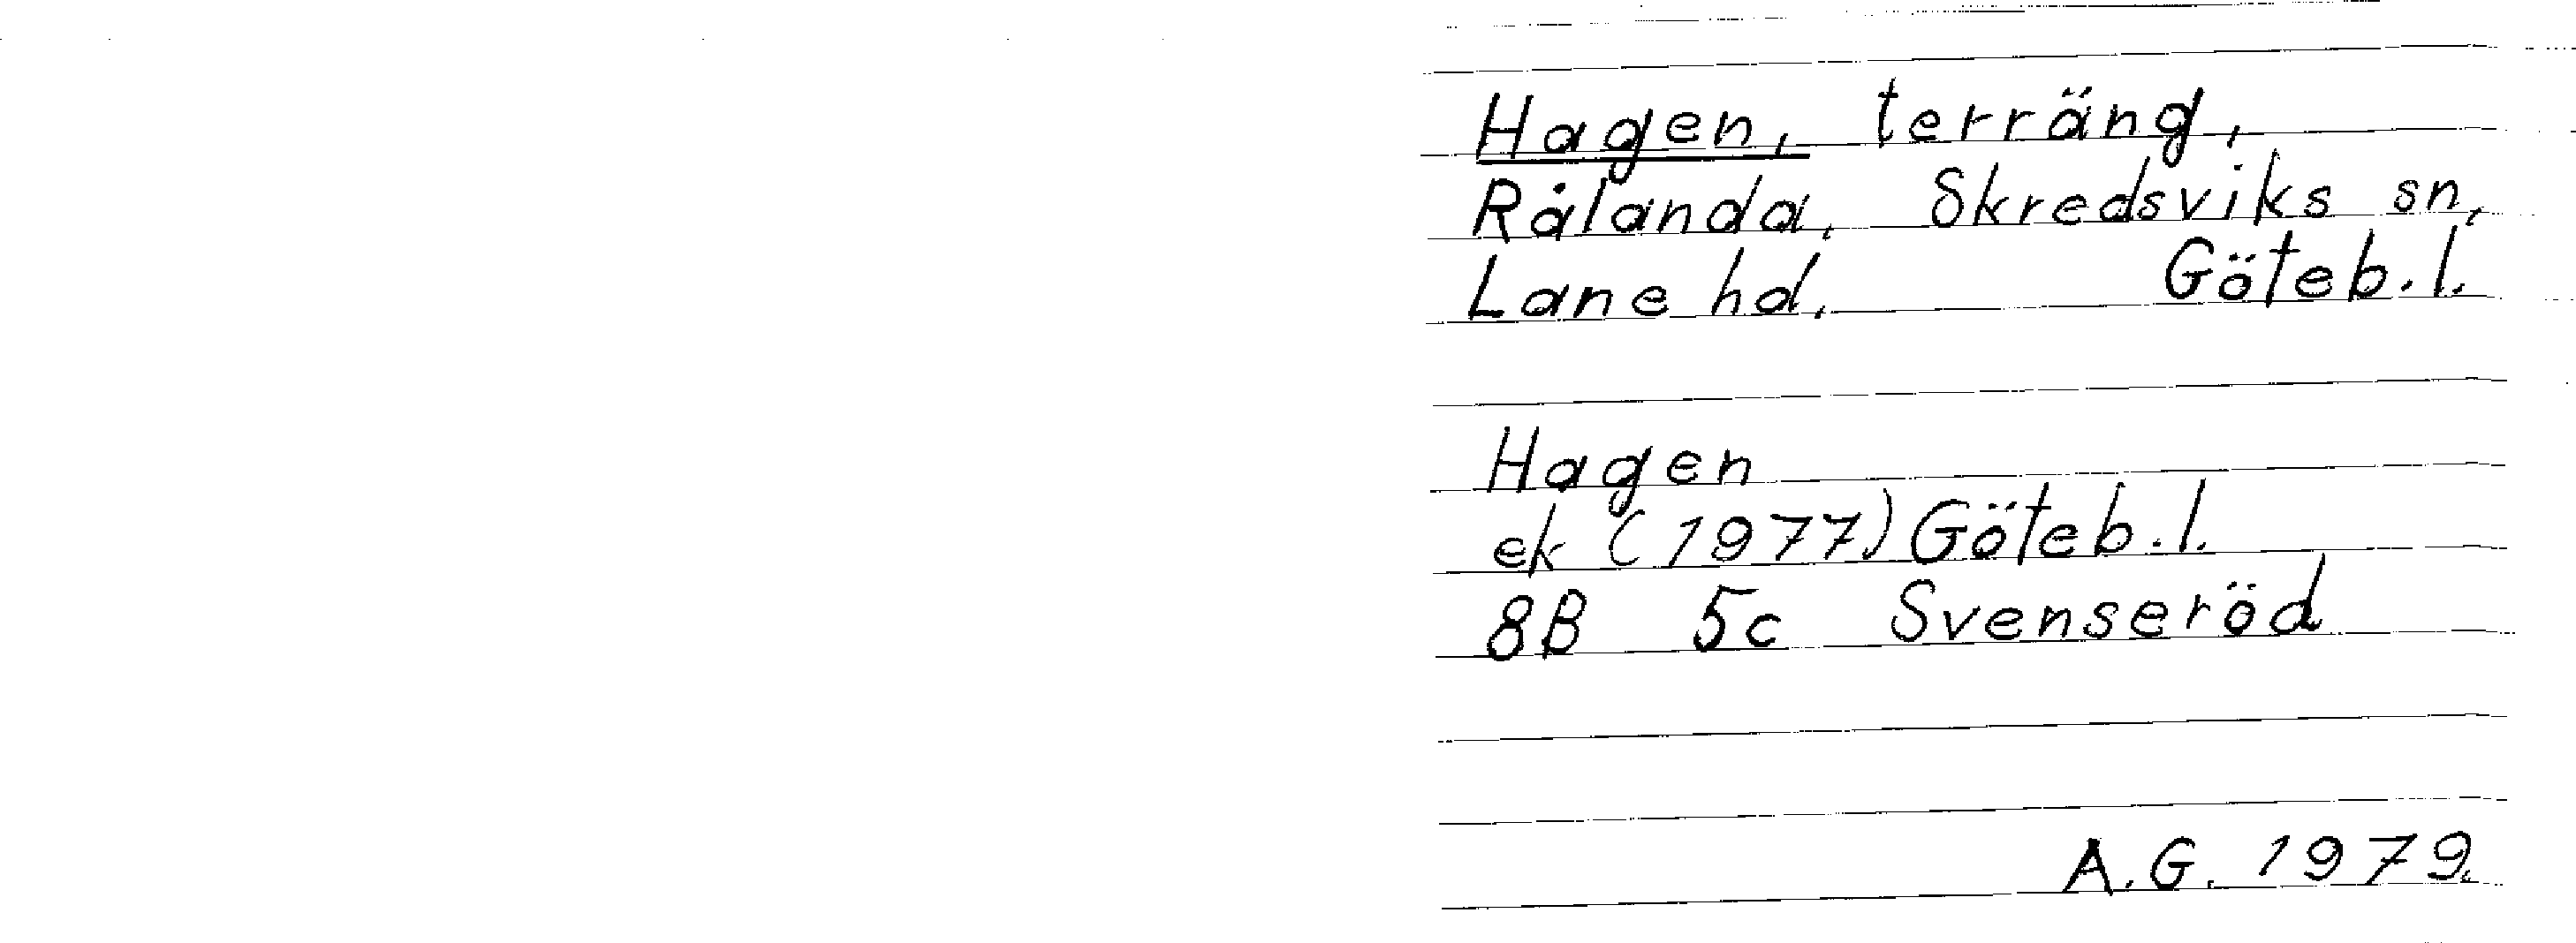 Hagen, terräng,
Rålanda, Skredsviks sn,
Lane hd, Göteb.l.
Hagen
ek (1977) Göteb.l.
8B 5c Svenseröd
A.G. 1979.